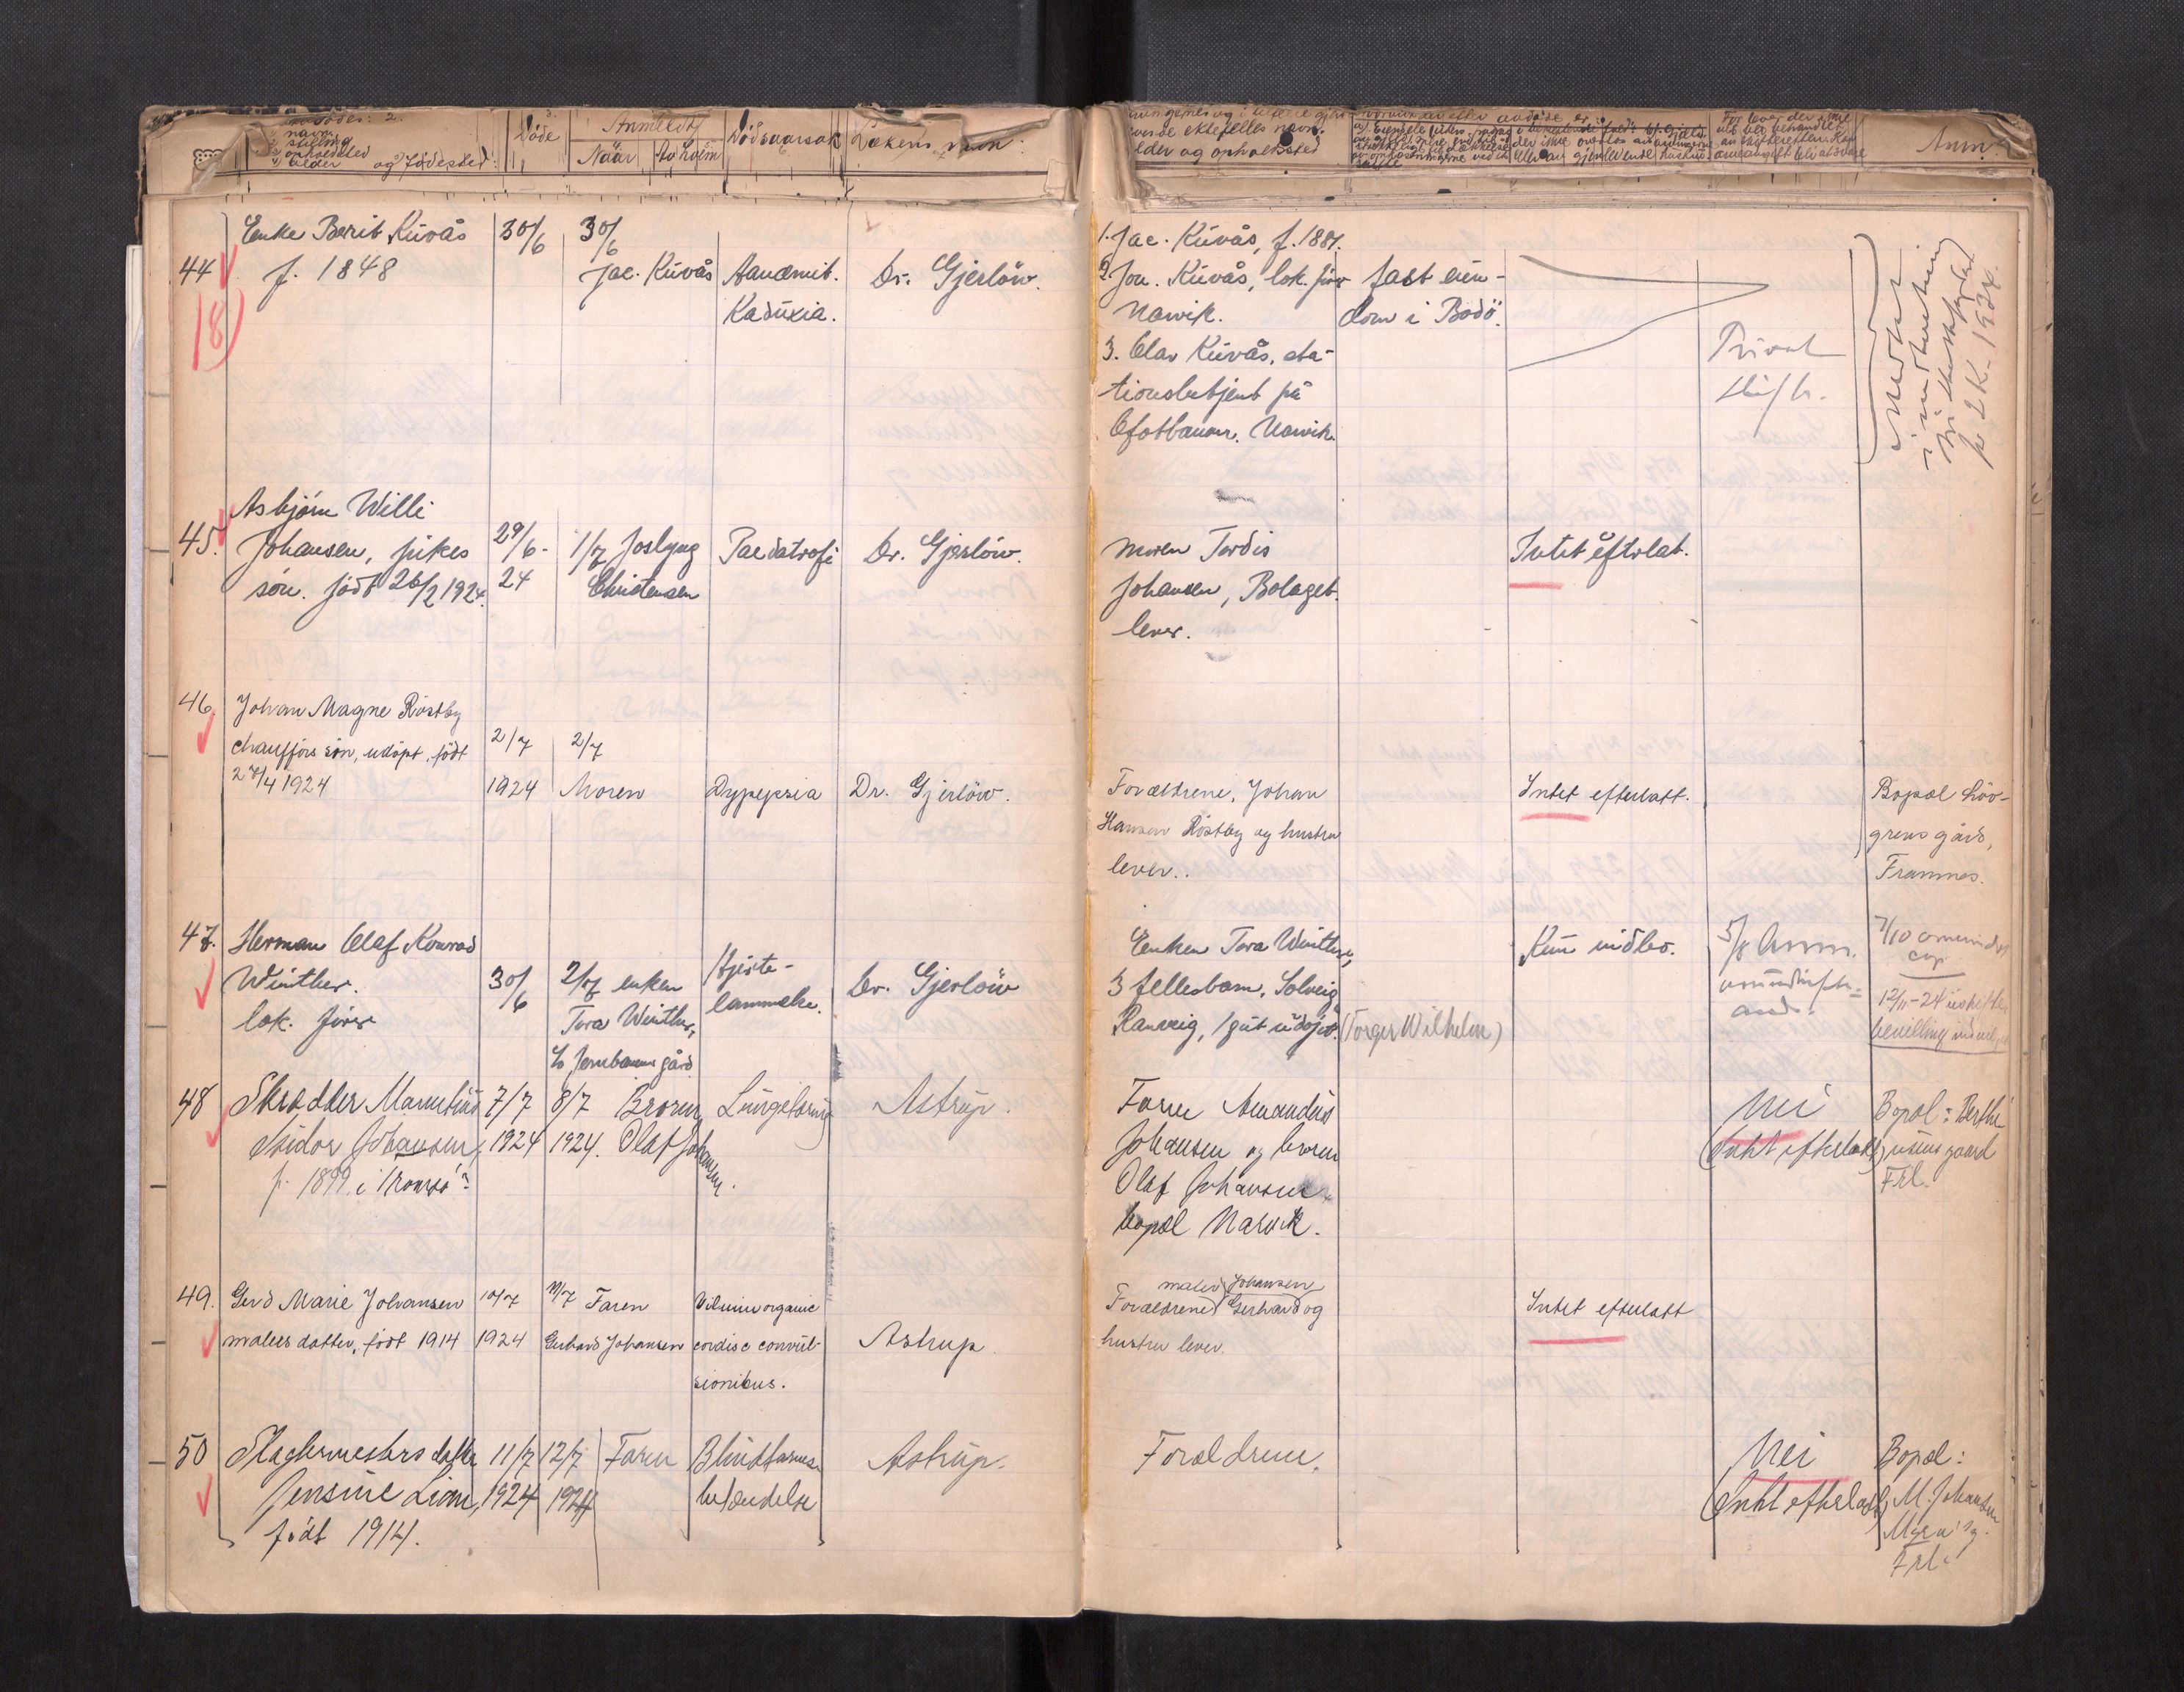 navn
stilling
opholdsted
alder og fødested:
Döde
Anmeldt
Naar Av hvem
Dödsaarsak
Lækens navn:
ektefelles navn.
alder og opholdssted
Anm.
44
Enke Berit Kuvås
f. 1848
30/6
30/6
Jac. Kuvås
Kaduxia.
Dr. Gjerlöw.
1. Jac. Kuvås, f. 1881.
2. Jon. Kuvås, lok. förer
Narvik.
3. Olav Kuvås, sta-
tionsbetjent på
Ofotbanen. Narvik.
fast eien-
dom i Bodö.
Privat
skifte.
18)
45.
Asbjörn Willi
Johansen, pikes
sön. födt 26/2 1924.
29/6-
24
1/7 Joslyng
Christensen
Paedatrofi
Dr. Gjerlöw.
Moren Tordis
Johansen, Bolaget.
lever.
Intet efterlat.
46.
Johan Magne Röstby
chaufförs sön, udöpt, födt
27/4 1924
2/7
1924
2/7
Moren
Dypepsia
Dr. Gjerlöw.
Forældrene, Johan
Hansen Röstby og hustru
lever..
Intet efterlatt.
Bopæl Löv-
grens gård,
Framnes.
47.
Herman Olaf Konrad
Winther.
lok. förer
30/6
2/7 enken
Tora Winther,
Jernbanens gård
Hjerte-
lammelse.
Dr. Gjerlöw
Enken Tora Winther,
3 fellesbarn, Solveig
Ranveig, 1 gut udöpt. (Torger Wilhelm)
Kun indbo.
5/8 Anm.
7/10
12/11-24 uskifte
bevilling
48
Skrædder Marentius
Isidor Johansen,
f. 1899 i Tromsö?
7/7
1924
8/7
1924.
Broren
Olaf Johansen.
Lungebetænd
Astrup.
Faren Amandus
Johansen og broren
Olaf Johansen
bopæl Narvik.
Nei
(Intet efterladt)
Bopæl: Berthe
gaard
Frl.
49.
Gerd Marie Johansen
malers datter, födt 1914
10/7
1924
11/7 Faren
Gerhard Johansen
Vitium organic
cordis c convul-
sionibus.
Astrup
maler Johansen
Forældrene Gerhard og
hustru lever.
Intet efterlatt
50
Slagtermesters datter
Jensine Lian,
födt 1914.
11/7
1924
12/7
1924
Faren
Blindtarms-
betændelse
Astrup.
Forældrene.
Nei
(Intet efterladt)
Bopæl:
M. Johansen
Frl.